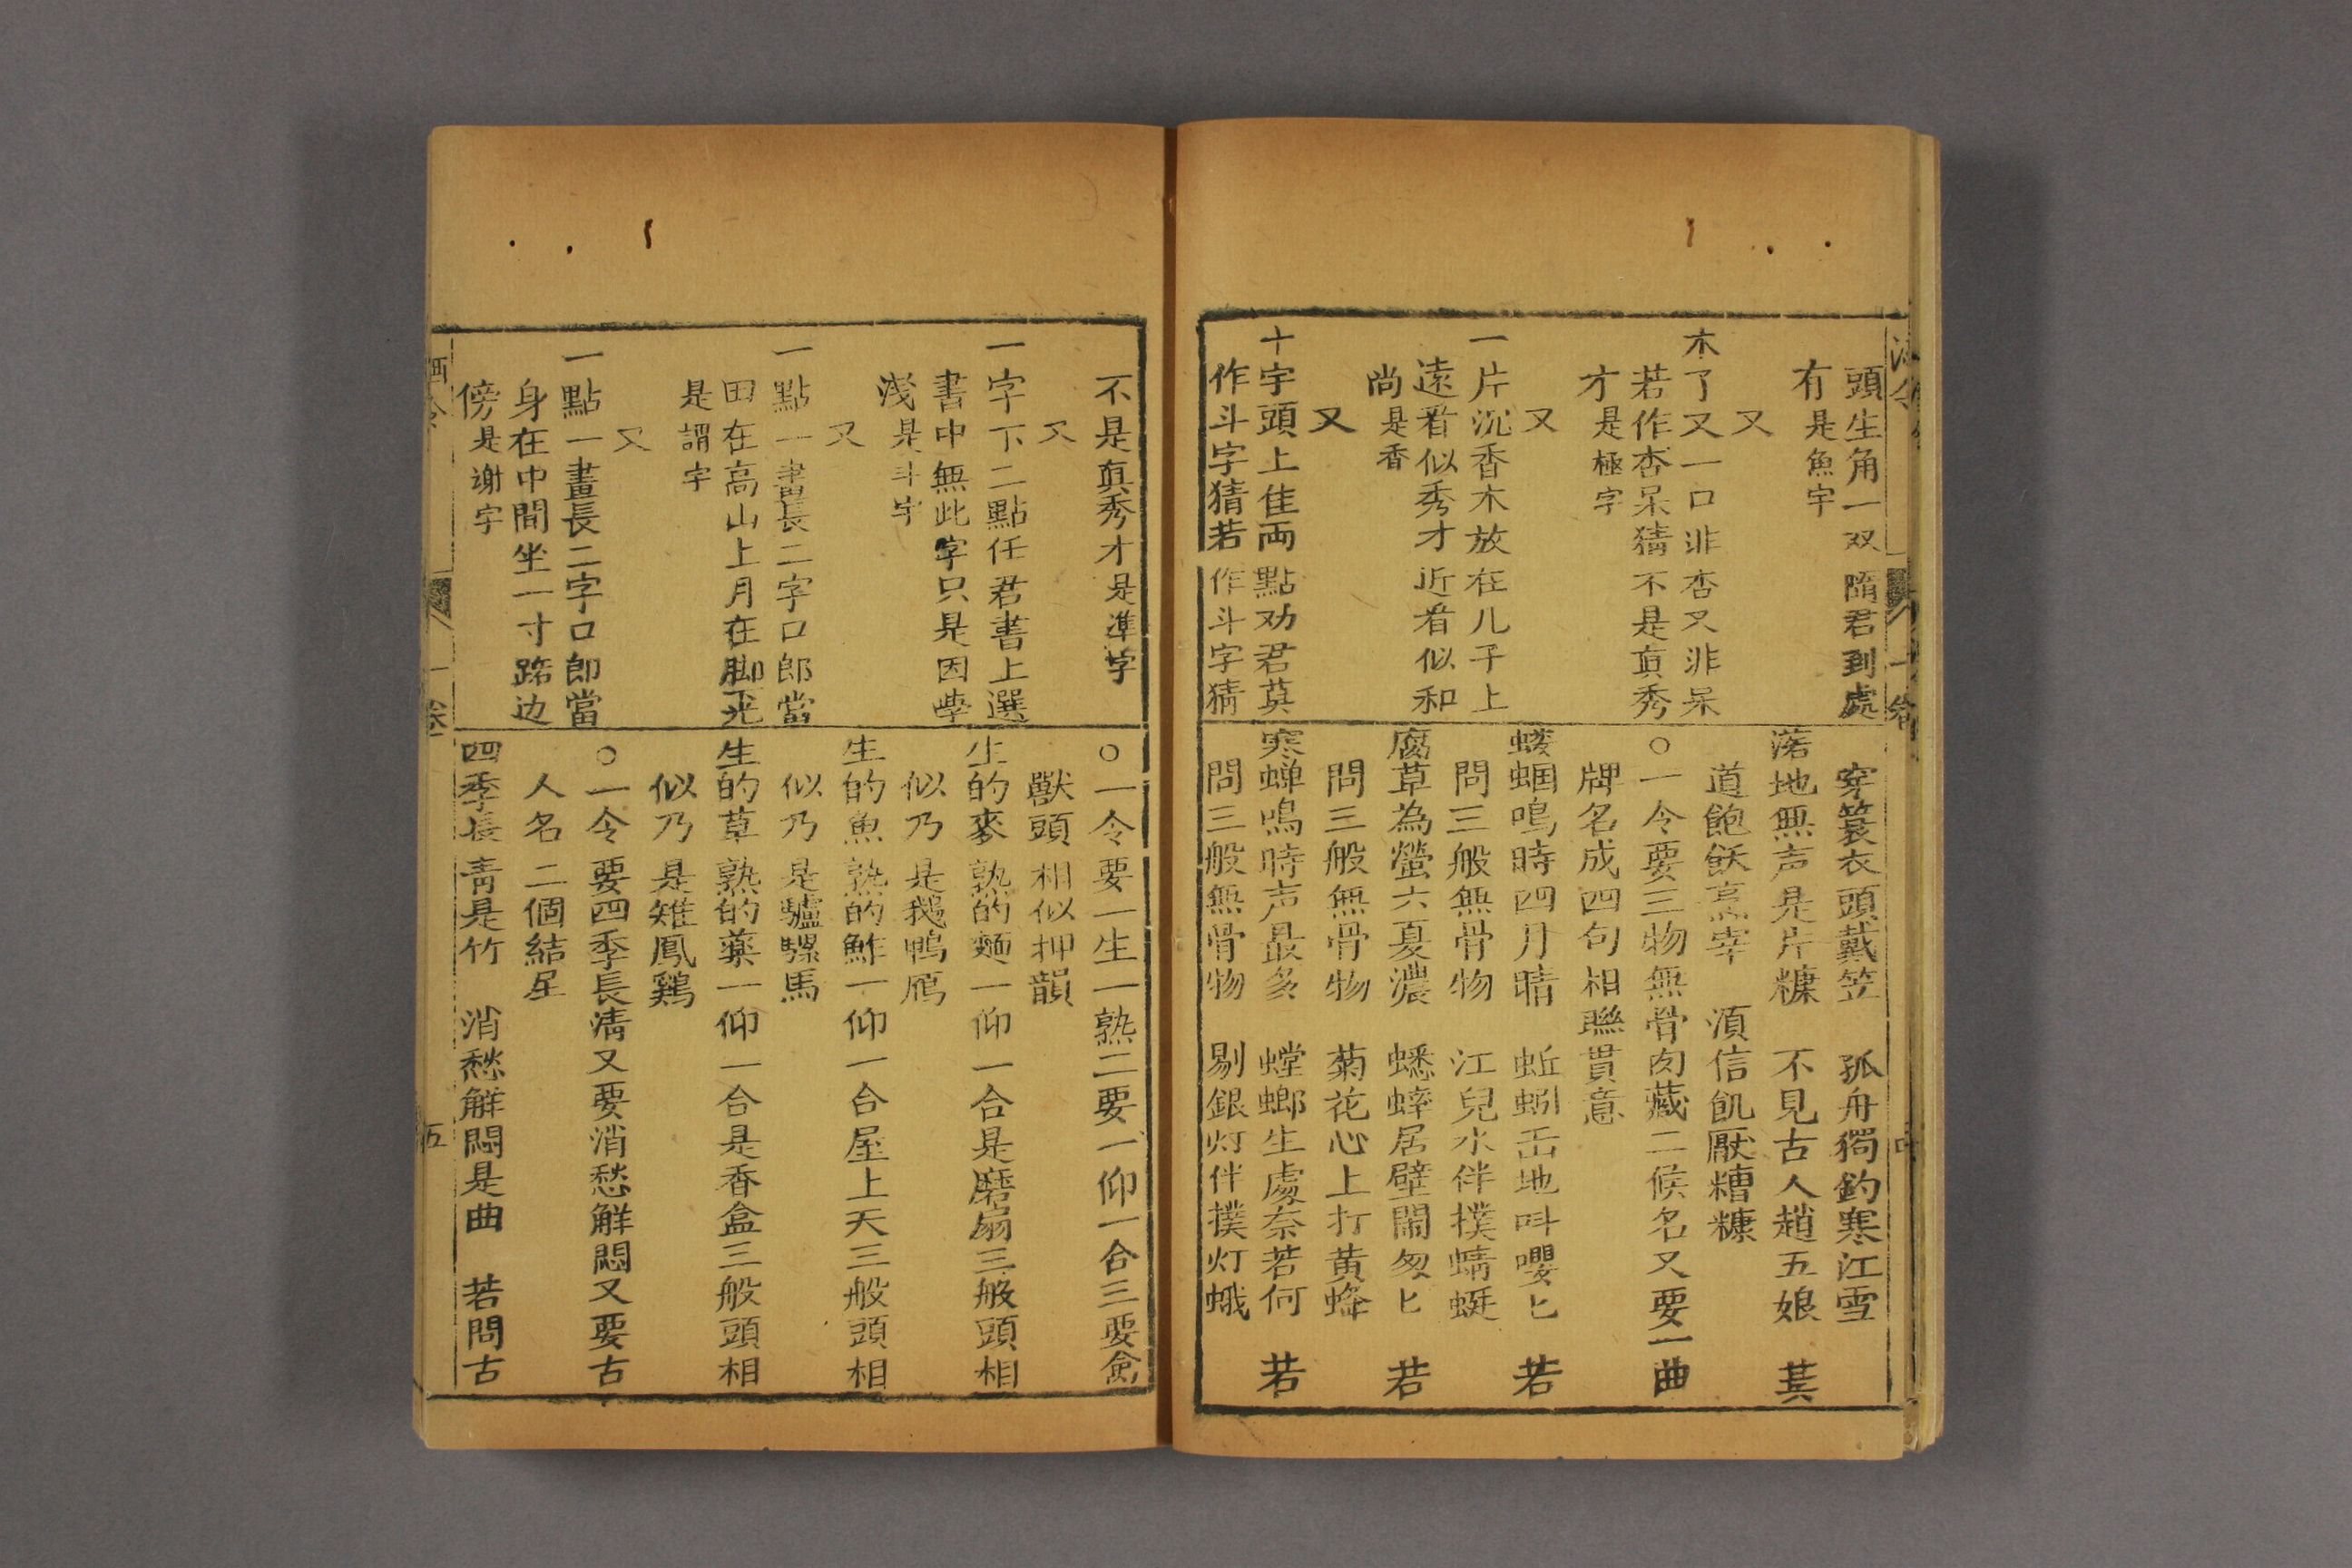 頭生角一双隨君到處
有是魚字
又
木了又一口非杏又非呆
若作杏呆猜不是真秀
才是極字
又
一片沉香木放在儿子上
遠看似秀才近看似和
尚是香
又
十字頭上隹両點劝君莫
作斗字猜若作斗字猜
穿簑衣頭戴笠 孤舟獨釣寒江雪
落地無声是片糠 不見古人趙五娘 其
道飽飫烹宰 須信飢厭糟糠
○一令要三物無骨肉藏二候名又要一曲
牌名成四句相聯貫意
蝼蝈鳴時四月晴 蚯蚓出地呌嚶匕 若
問三般無骨物 江兒水伴撲蜻蜓
腐草為螢六夏濃 蟋蟀居壁閙匆匕 若
問三般無骨物 菊花心上打黄蜂
寒蝉鳴時声最多 螳螂生處奈若何 若
問三般無骨物 剔銀灯伴撲灯蛾
不是真秀才是準字
又
一字下二點任君書上選
書中無此字只是因學
浅是斗字
又
一點一畫長二字口郎當
田在高山上月在脚下光
是謂字
又
一點一畫長二字口郎當
身在中間坐一寸路边
傍是谢字
○一令要一生一熟二要一仰一合三要禽
獸頭相似押韻
生的麥熟的麺一仰一合是磨扇三般頭相
似乃是鵝鴨鴈
生的魚熟的鮓一仰一合屋上天三般頭相
似乃是驢騾馬
生的草熟的藥一仰一合是香盒三般頭相
似乃是雉鳳鷄
○一令要四季長清又要消愁解悶又要古
人名二個結呈
四季長青是竹 消愁解悶是曲 若問古
酒令 一卷 五